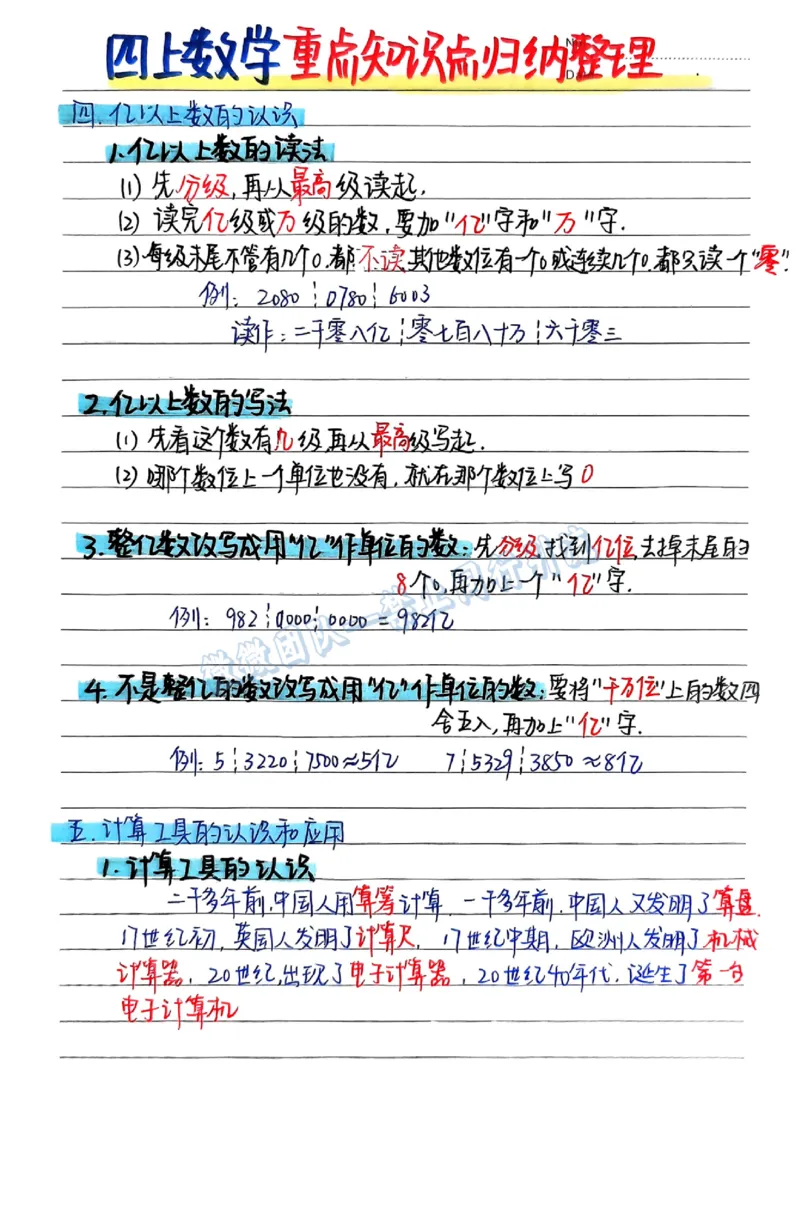 四上数学重点知识点归纳整理
四.亿以上数的认识
1.亿以上数的读法
(1) 先分级,再从最高级读起.
(2) 读完亿级或万级的数,要加"亿"字和"万"字.
(3)每级末尾不管有几个0.都不读,其他数位有一个0或连续几个0.都只读一个"零".
例: 2080┆0780┆6003
读作:二千零八亿┆零七百八十万┆六千零三
2.亿以上数的写法
(1)先看这个数有几级再从最高级写起.
(2)哪个数位上一个单位也没有,就在那个数位上写0
3.整亿数改写成用"亿"作单位的数:先分级,找到亿位,去掉末尾的
8个0,再加上一个"亿"字.
例: 982┆0000┆0000=982亿
4.不是整亿的数改写成用"亿"作单位的数:要将"千万位"上的数四
舍五入,再加上"亿"字.
例:5┆3220┆7500≈5亿 7┆5329┆3850≈8亿
五.计算工具的认识和应用
1.计算工具的认识
二千多年前,中国人用算筹计算.一千多年前.中国人又发明了算盘.
17世纪初,英国人发明了计算尺,17世纪中期,欧洲人发明了机械
计算器,20世纪,出现了电子计算器,20世纪40年代.诞生了第一台
电子计算机